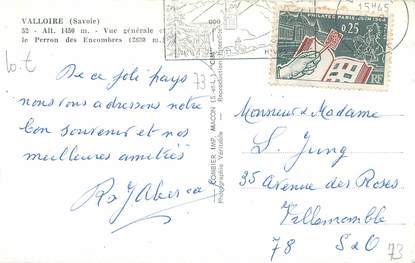 VALLOIRE (Savoie)
52 - Alt. 1450 m. - Vue générale et
le Perron des Encombres (2830 m.)
b.t
73
De ce joli pays
nous vous adressons notre
bon souvenir et nos
meilleures amitiés
COMBIER IMP. MACON (S.-et-L.) "CIM"
Photographie Véritable - Reproduction Interdite
15H45
PHILATEC PARIS JUIN 1964
0,25
RF
Monsieur & Madame
L. Jung
35 Avenue des Roses
Villemomble
78 S&O
73